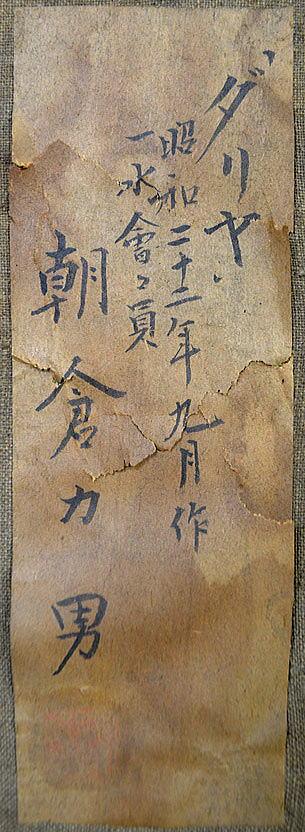 "ダリヤ"
昭和二十二年九月作
一水會々員
朝倉力男